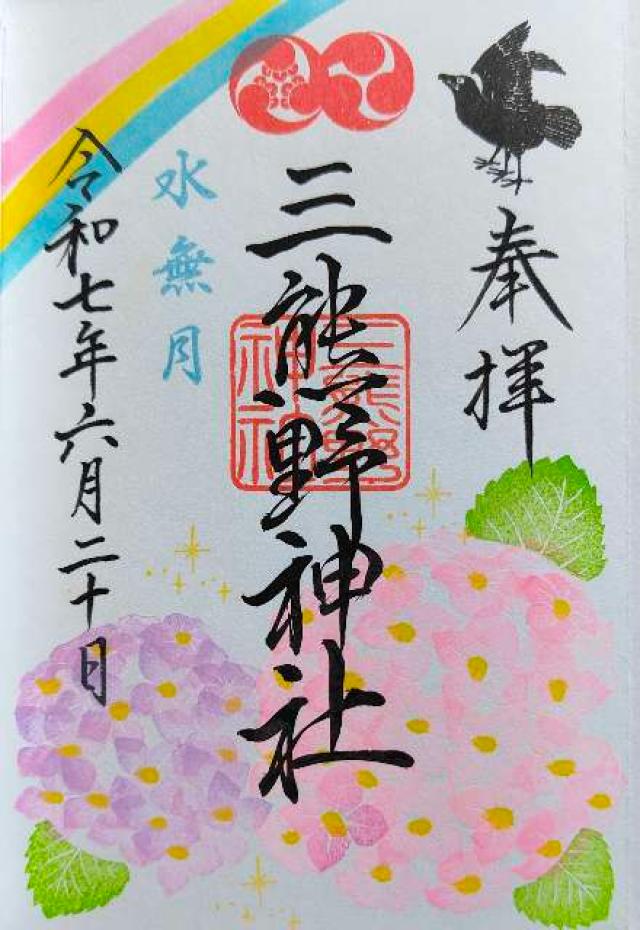 奉拝
三熊野神社
三熊野神社
水無月
令和七年六月二十日